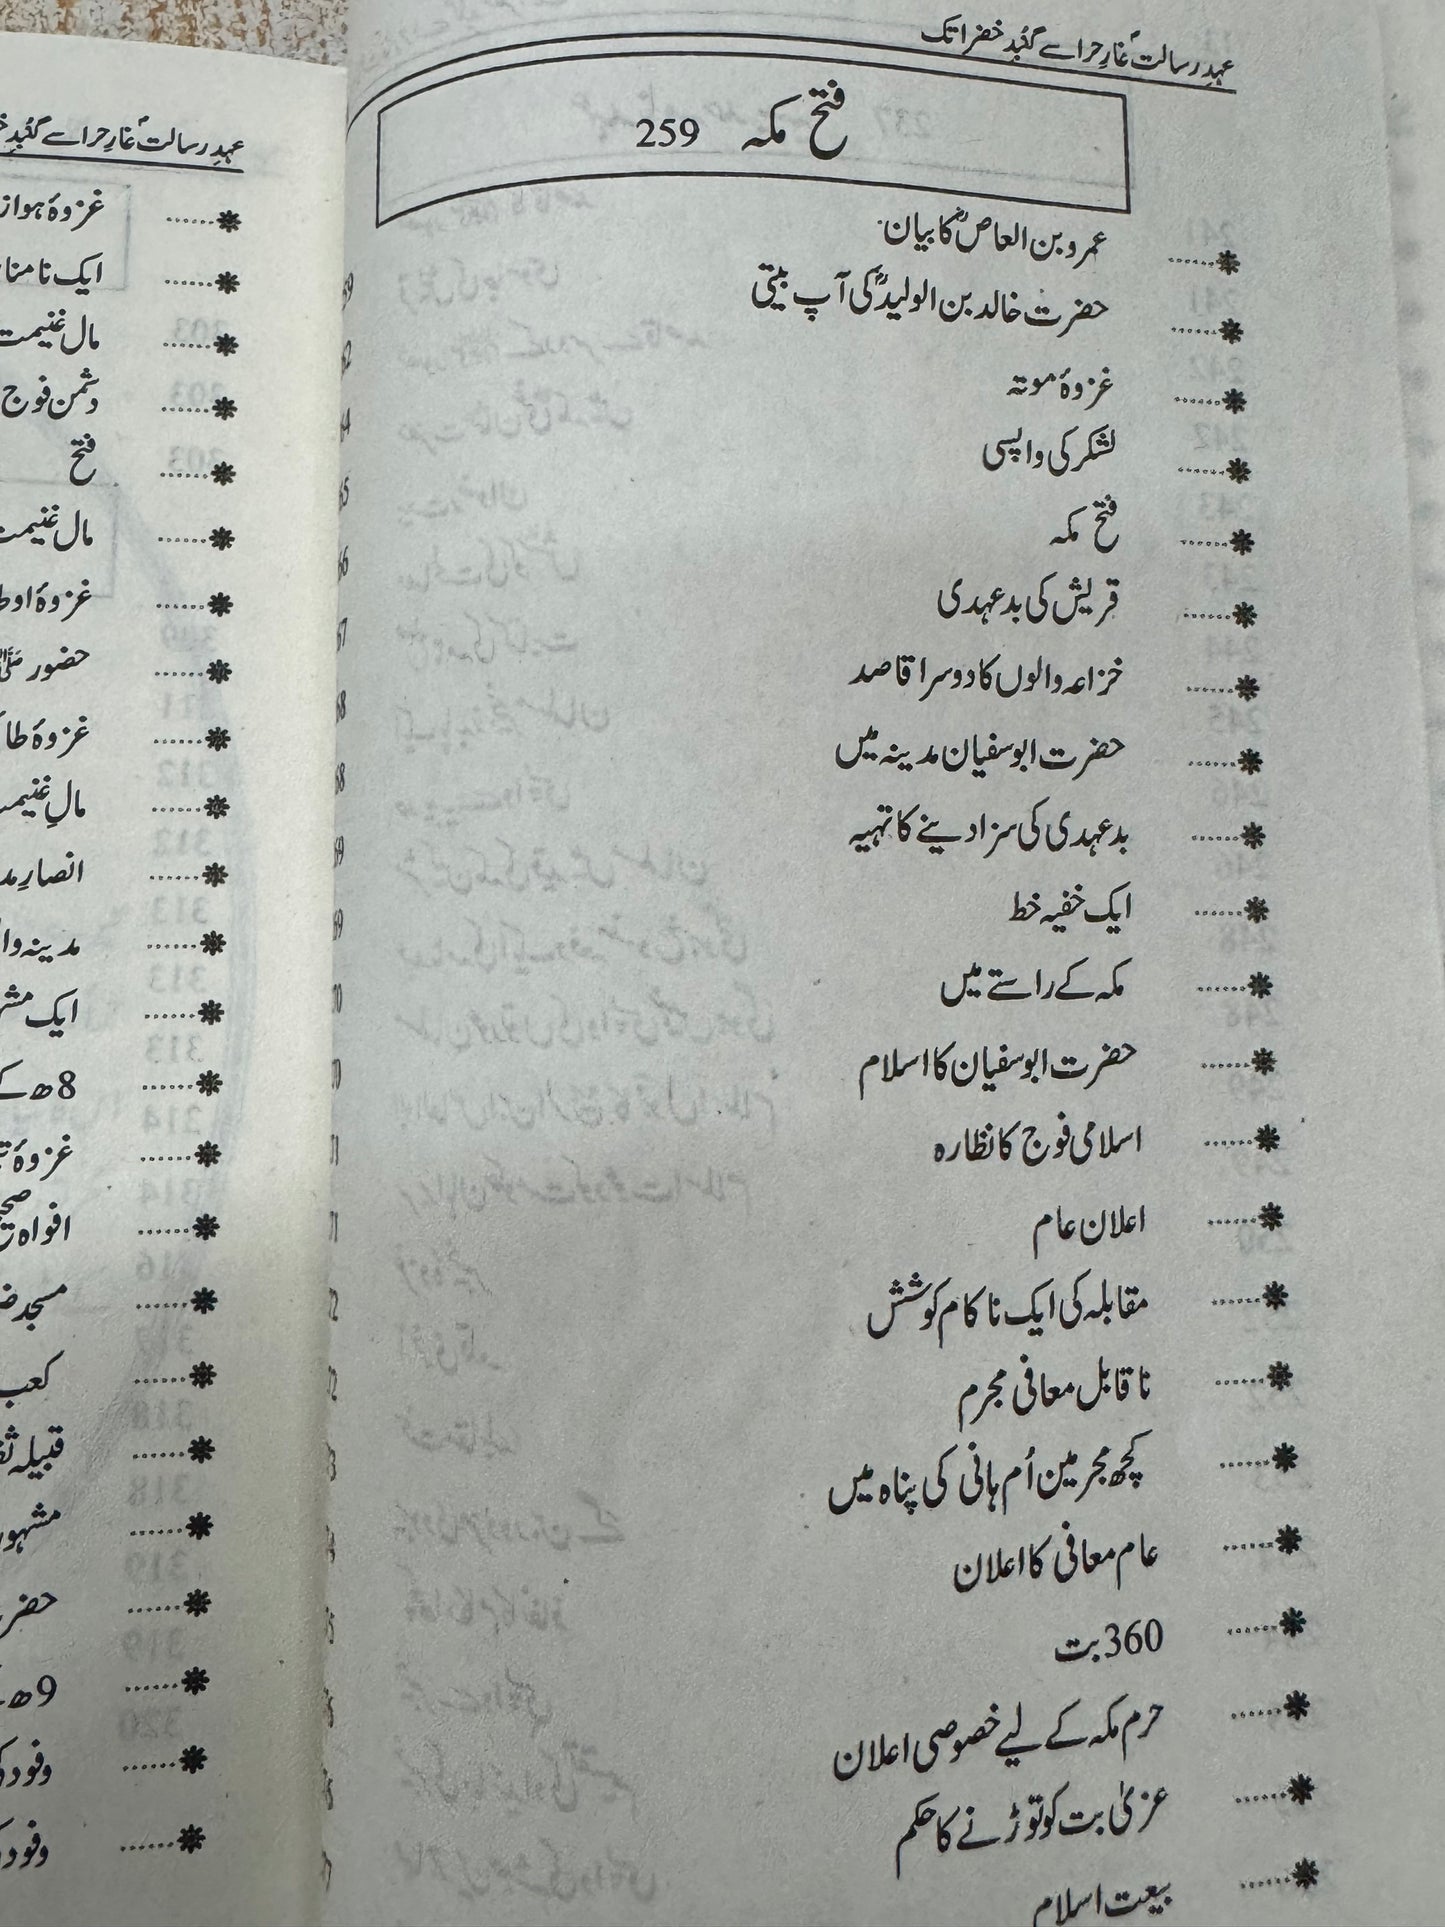 عہدِ رسالت غارِ حرا سے گنبدِ خضرا تک
فتح مکہ 259
عمرو بن العاصؓ کا بیان
حضرت خالد بن الولیدؓ کی آپ بیتی
غزوۂ موتہ
لشکر کی واپسی
فتح مکہ
قریش کی بدعہدی
خزاعہ والوں کا دوسرا قاصد
حضرت ابوسفیان مدینہ میں
بدعہدی کی سزا دینے کا تہیہ
ایک خفیہ خط
مکہ کے راستے میں
حضرت ابوسفیان کا اسلام
اسلامی فوج کا نظارہ
اعلان عام
مقابلہ کی ایک ناکام کوشش
ناقابل معافی مجرم
کچھ مجرمین اُم ہانی کی پناہ میں
عام معافی کا اعلان
360 بت
حرم مکہ کے لیے خصوصی اعلان
عزیٰ بت کو توڑنے کا حکم
بیعت اسلام
عہدِ رسالت غارِ حرا سے گنبدِ
غزوۂ
ایک
مال غنیمت
دشمن فوج
فتح
مال غنیمت
غزوۂ
حضور
غزوۂ
مالِ
انصارِ
مدینہ
ایک
8ھ کے
غزوۂ
افواہ
مسجد
کعب
قبیلہ
مشہور
9ھ
وفود
وفود